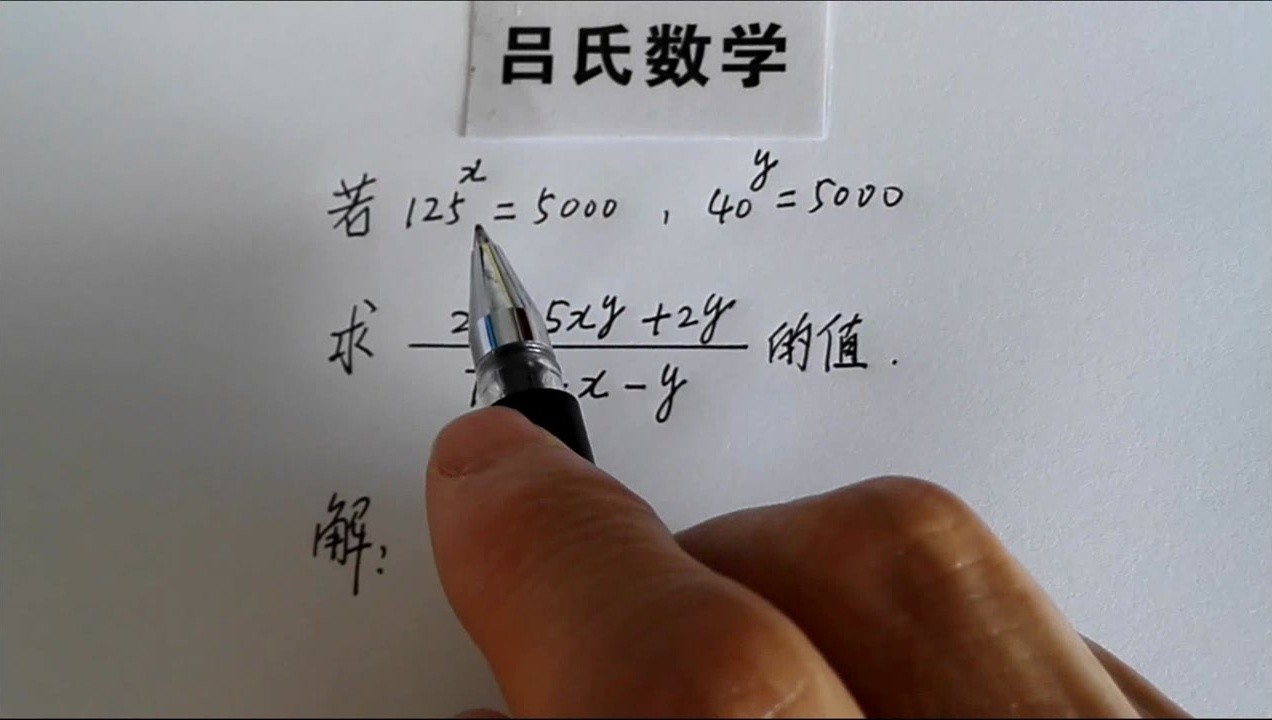 吕氏数学
若 125^x = 5000 , 40^y = 5000
求 2 5xy + 2y 的值.
x - y
解: